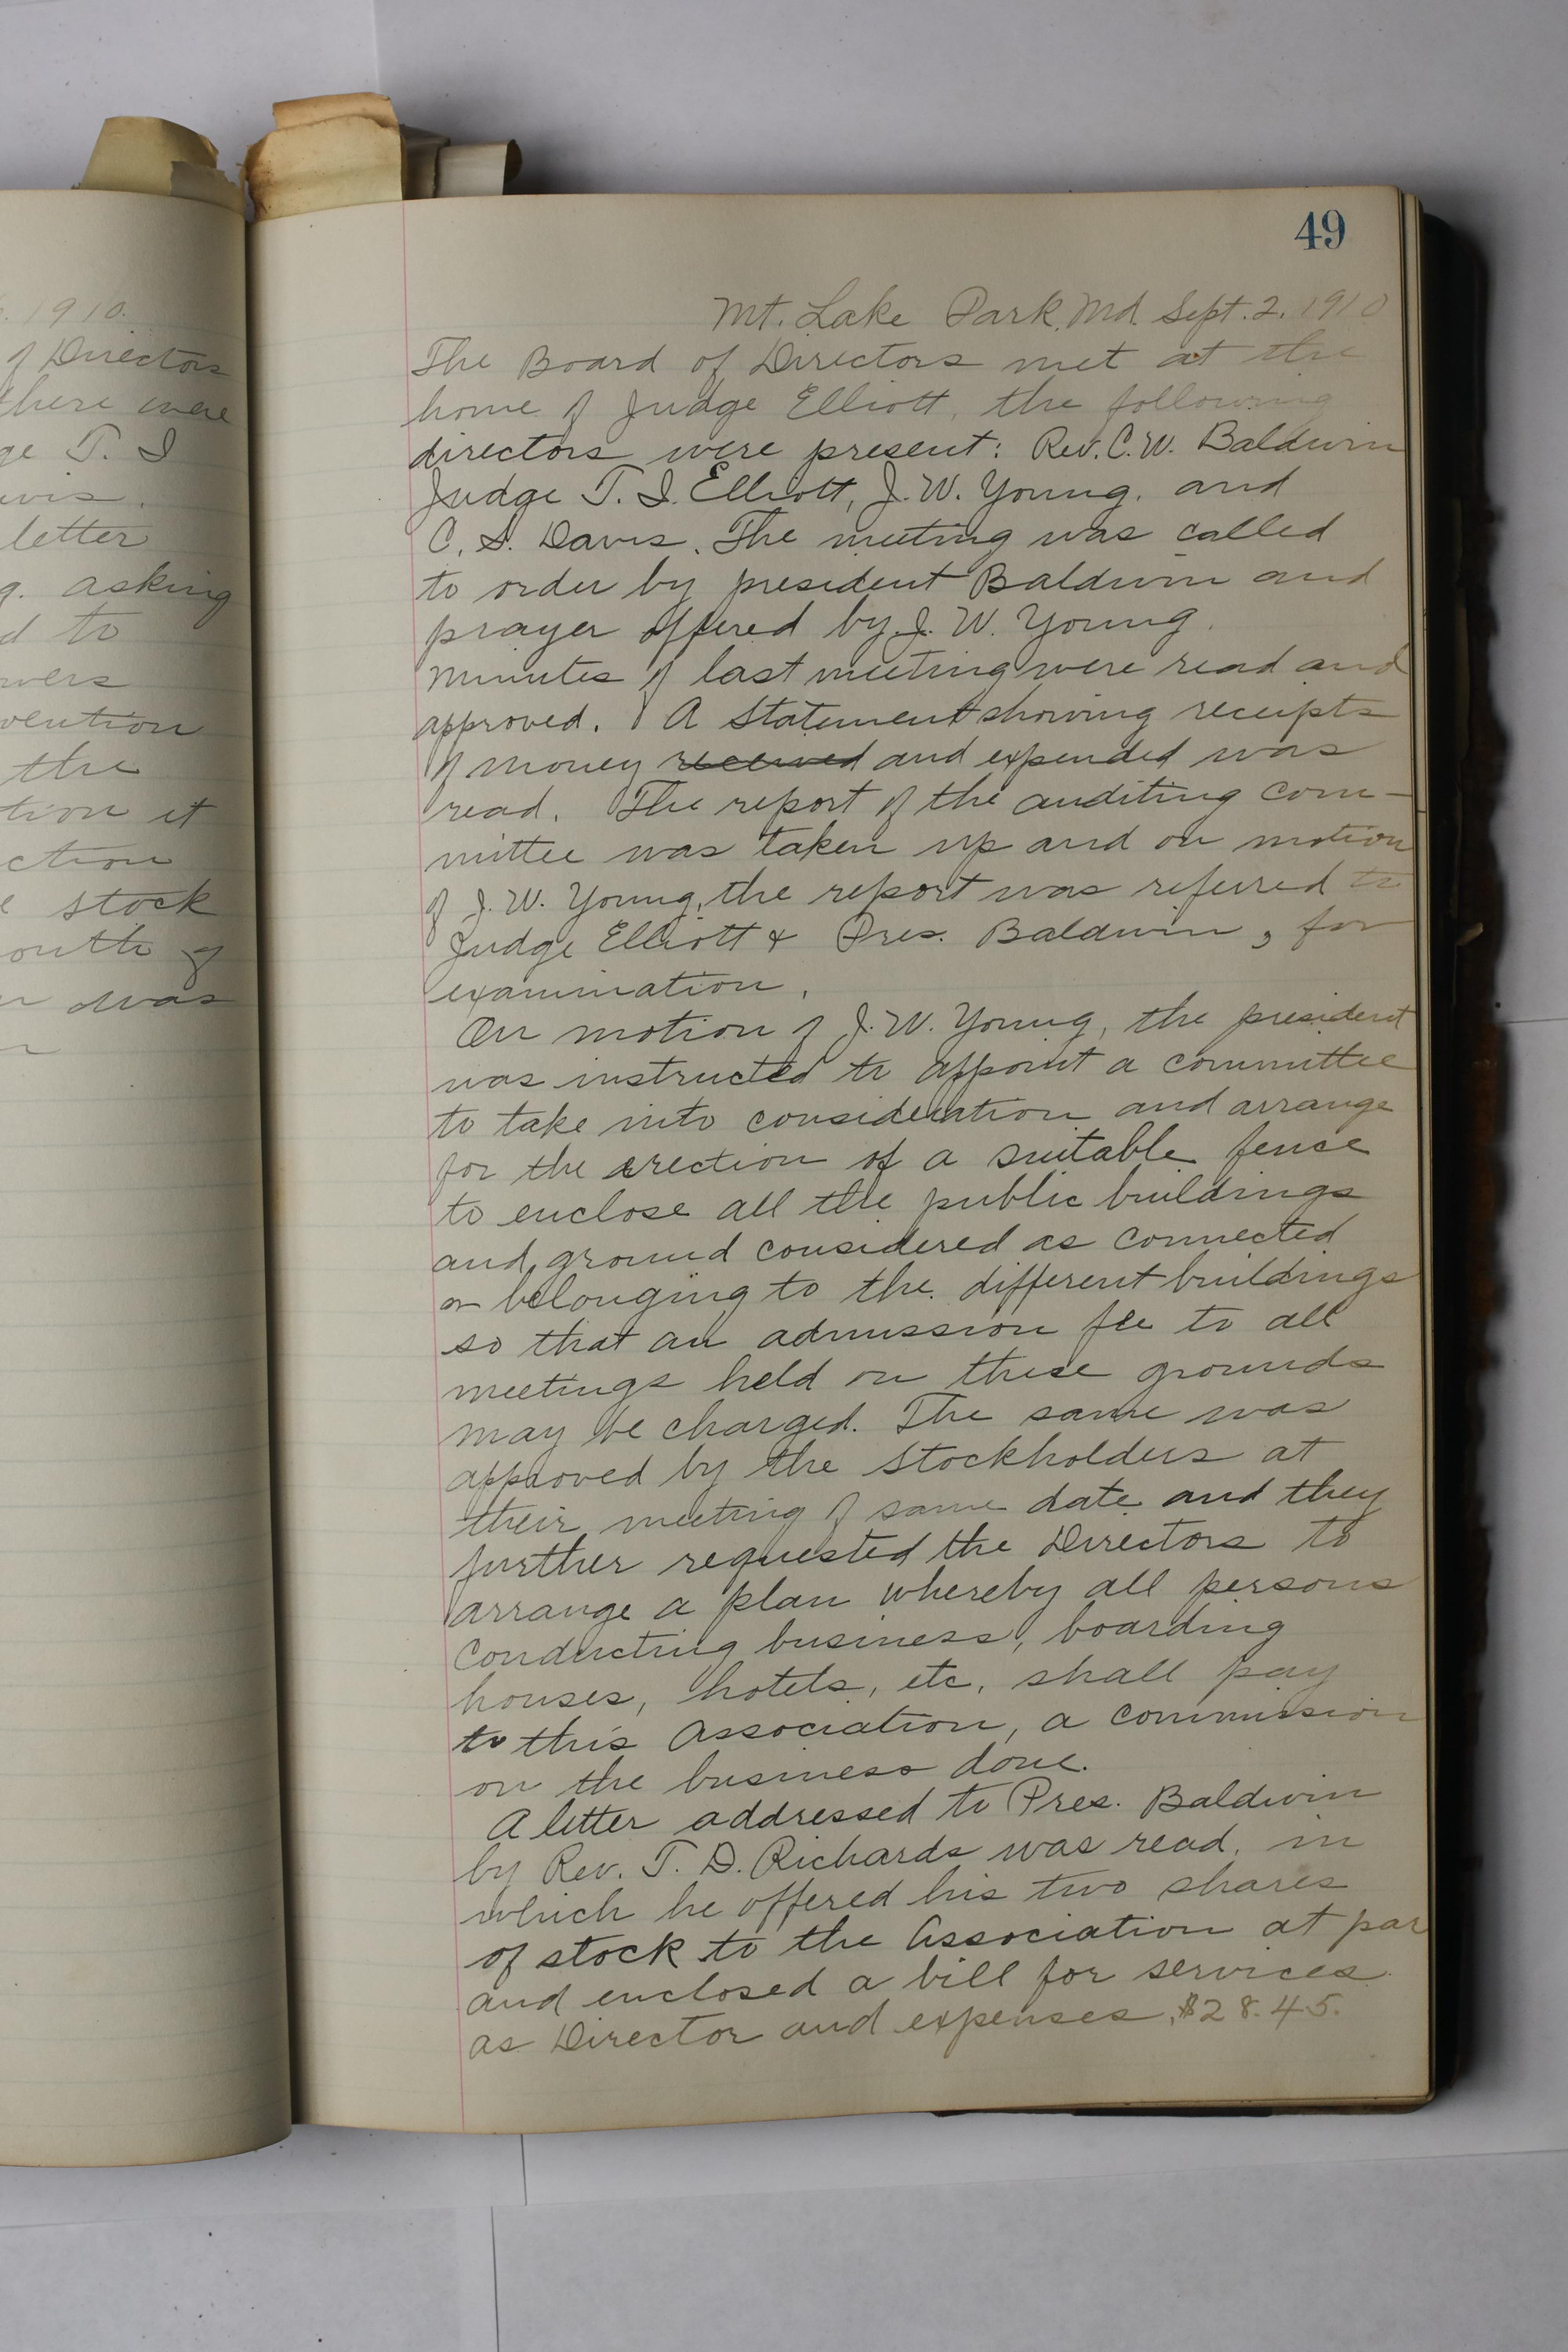 . 1910.
of Directors
there were
ge T. I
avis.
letter
g. asking
d to
wers
vention
the
tion it
ction
e stock
outh of
n was
49
Mt. Lake Park, Md. Sept. 2. 1910
The Board of Directors met at the
home of Judge Elliott, the following
directors were present: Rev. C. W. Baldwin
Judge T. I. Elliott, J. W. Young. and
C. S. Davis. The meeting was called
to order by president Baldwin and
prayer offered by J. W. Young.
Minutes of last meeting were read and
approved. A Statement showing receipts
of money received and expended was
read. The report of the auditing com-
mittee was taken up and on motion
of J. W. Young, the report was referred to
Judge Elliott & Pres. Baldwin, for
examination.
On motion of J. W. Young, the president
was instructed to appoint a committee
to take into consideration and arrange
for the erection of a suitable fence
to enclose all the public buildings
and ground considered as connected
or belonging to the different buildings
so that an admission fee to all
meetings held on these grounds
may be charged. The same was
approved by the Stockholders at
their meeting of same date and they
further requested the Directors to
arrange a plan whereby all persons
conducting business, boarding
houses, hotels, etc, shall pay
to this Association, a commission
on the business done.
A letter addressed to Pres. Baldwin
by Rev. T. D. Richards was read, in
which he offered his two shares
of stock to the Association at par
and enclosed a bill for services
as Director and expenses, $28.45.